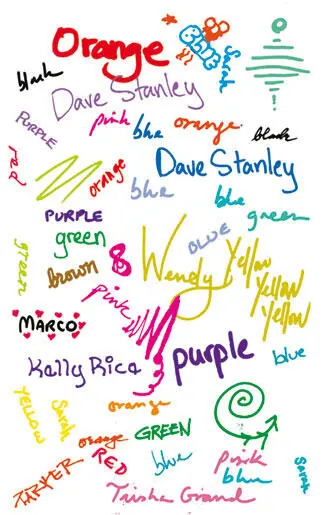 Orange
BLUE
Sarah
black
Dave Stanley
PURPLE
pink
blue
orange
black
red
orange
Dave Stanley
blue
blue
green
PURPLE
green
BLUE
green
brown
Wendy
Yellow
Yellow
Yellow
pink
MARCO
Kelly Rice
purple
blue
YELLOW
Sarah
orange
orange
GREEN
RED
blue
pink
blue
Sarah
PARKER
Trisha Grand